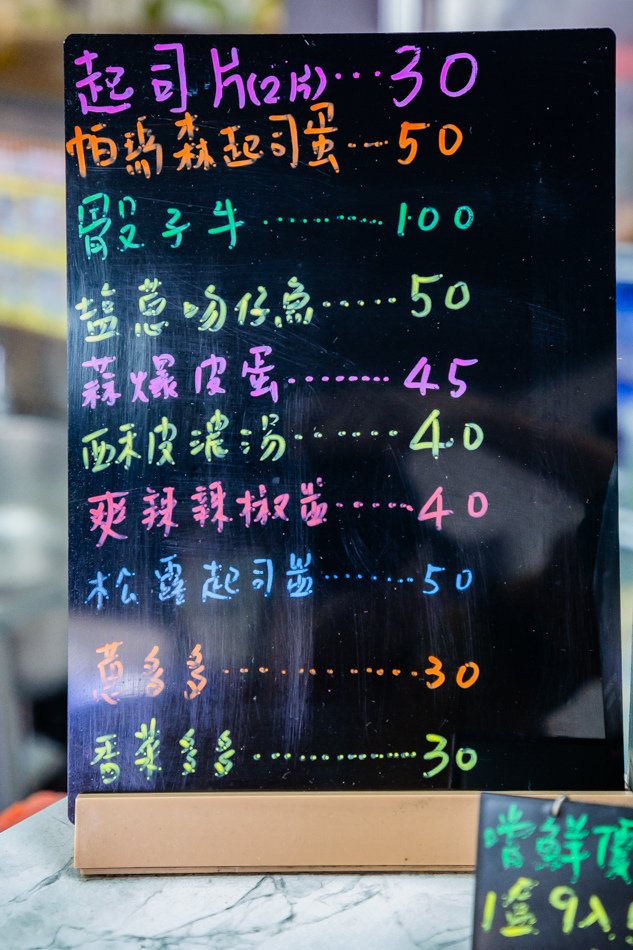 起司片(2片)...30
帕瑪森起司蛋...50
骰子牛..........100
塩蔥吻仔魚......50
蒜爆皮蛋.........45
酥皮濃湯.......40
爽辣辣椒盅.......40
松露起司盅........50
蔥多多..............30
香菜多多..............30
嚐鮮優
1盒9入